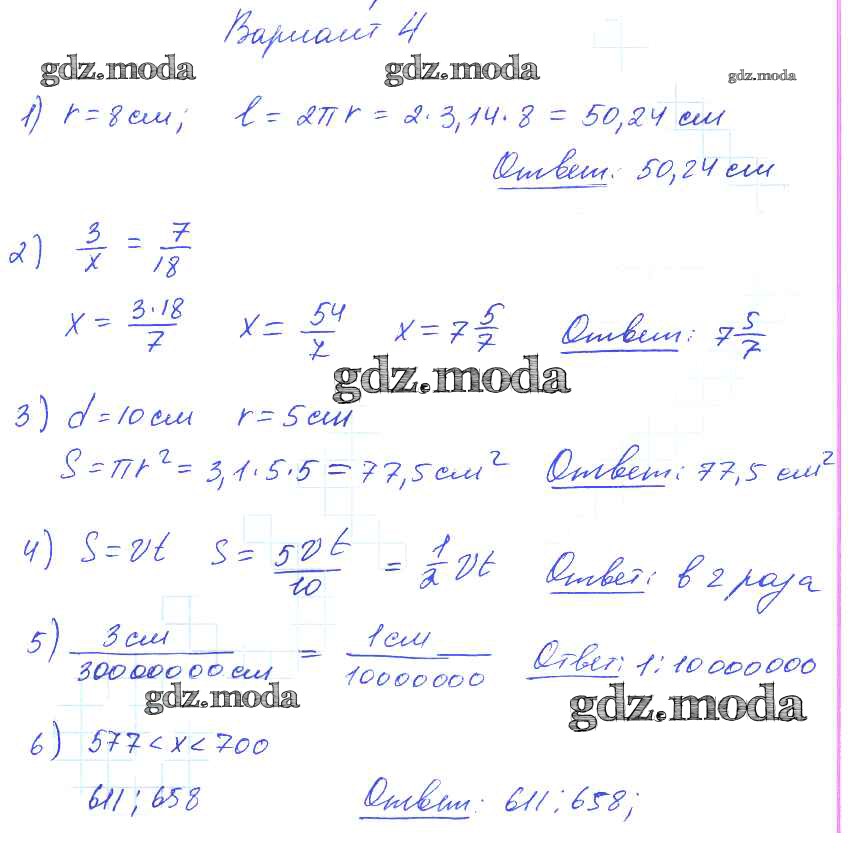 Вариант 4
gdz.moda gdz.moda gdz.moda
1) r = 8 см; l = 2πr = 2·3,14·8 = 50,24 см
Ответ: 50,24 см
2) 3/x = 7/18
x = 3·18/7 x = 54/7 x = 7 5/7 Ответ: 7 5/7
gdz.moda
3) d = 10 см r = 5 см
S = πr² = 3,1·5·5 = 77,5 см² Ответ: 77,5 см²
4) S = vt S = 5vt/10 = 1/2 vt Ответ: в 2 раза
5) 3 см/30000000 см = 1 см/10000000 Ответ: 1:10000000
gdz.moda gdz.moda
6) 577 < x < 700
611; 658 Ответ: 611; 658;